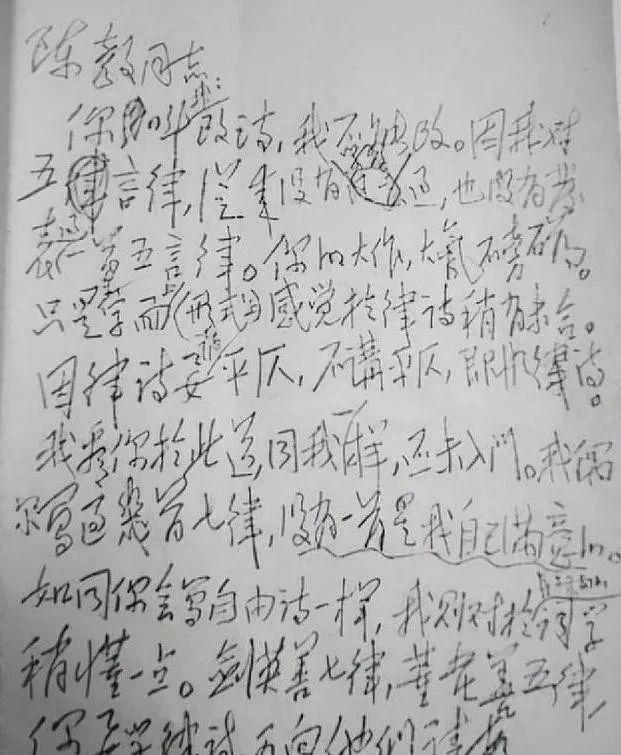 陈毅同志:
你叫我改诗,我不能改。因我对
五言律,从来没有学习过,也没有发
表过一首五言律。你的大作,大气磅礴。
只是在字面(形式)感觉于律诗稍有未合。
因律诗要讲平仄,不讲平仄,即非律诗。
我看你于此道,同我一样,还未入门。我偶
尔写过几首七律,没有一首是我自己满意的。
如同你会写自由诗一样,我则对于长短句的词学
稍懂一点。剑英善七律,董老善五律,
你要学律诗,可向他们请教